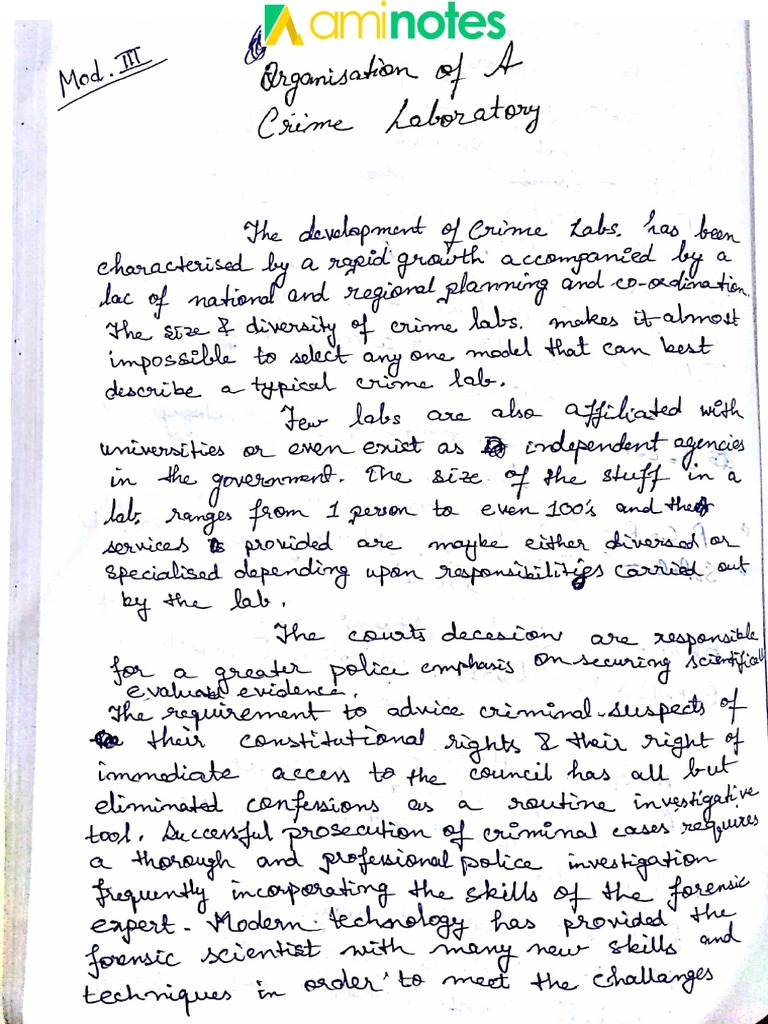 aminotes
Mod. III
Organisation of A
Crime Laboratory
The development of Crime Labs. has been
characterised by a rapid growth accompanied by a
lac of national and regional planning and co-ordination.
The size & diversity of crime labs. makes it almost
impossible to select any one model that can best
describe a typical crime lab.
Few labs are also affiliated with
universities or even exist as independent agencies
in the government. The size of the stuff in a
lab. ranges from 1 person to even 100's and the
services provided are maybe either diversed or
specialised depending upon responsibilities carried out
by the lab.
The courts decesion are responsible
for a greater police emphasis on securing scientifically
evaluated evidence.
The requirement to advice criminal suspects of
their constitutional rights & their right of
immediate access to the council has all but
eliminated confessions as a routine investigative
tool. Successful prosecution of criminal cases requires
a thorough and professional police investigation
frequently incorporating the skills of the forensic
expert. Modern technology has provided the
forensic scientist with many new skills and
techniques in order to meet the challanges